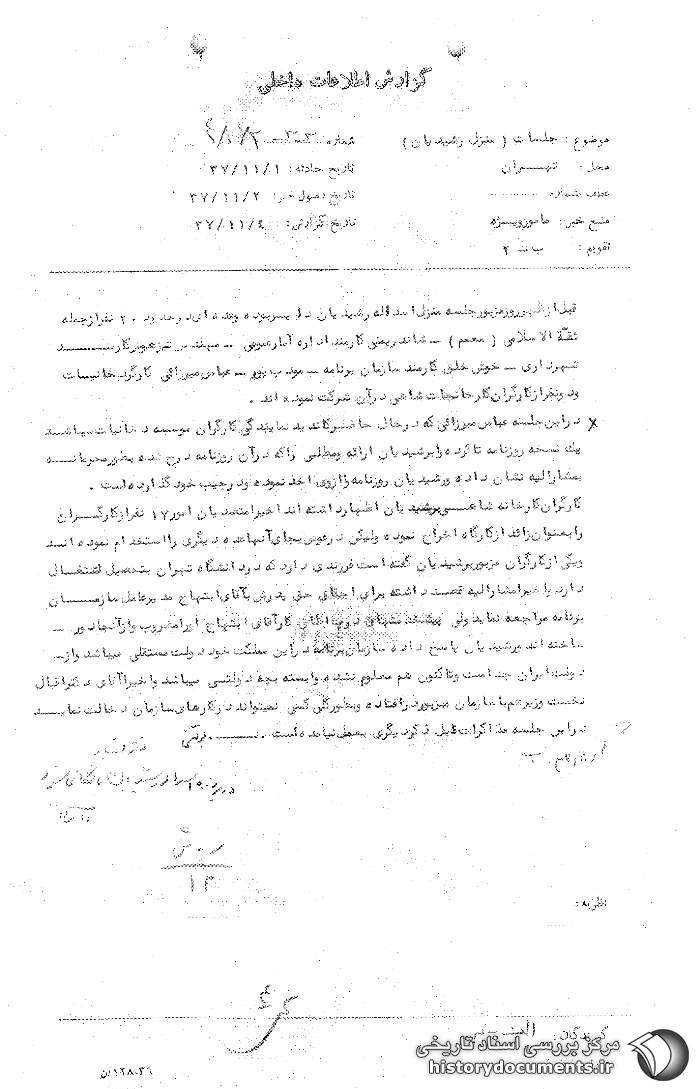 گزارش اطلاعات داخلی
موضوع : جلسات ( منزل رشیدیان )
شماره
محل : تهران
تاریخ حادثه : ۳۷/۱۱/۱
عطف شماره
تاریخ وصول خبر : ۳۷/۱۱/۲
منبع خبر : مامور ویژه
تاریخ گزارش : ۳۷/۱۱/۴
تقویم : ب ـ ۲
قبل از ظهر روز مزبور جلسه منزل اسداله رشیدیان دایر بوده و عده ای در حدود ۲۰ نفر از جمله
ثقة الاسلامی ( معمم ) ـ شاندرمنی کارمند اداره آمار عمومی ـ مهندس کارمند
شهرداری ـ خوش خلق کارمند سازمان برنامه ـ مودب پور ـ عباس میرزائی کارگر دخانیات
و دو نفر از کارگران کارخانجات شاهی در آن شرکت نموده اند .
× در این جلسه عباس میرزائی که در حال حاضر کاندید نمایندگی کارگران موسسه دخانیات میباشد
یک نسخه روزنامه تا کرده را برشیدیان ارائه و مطلبی را که در آن روزنامه درج شده بطور محرمانه
بمشارالیه نشان داده و رشیدیان روزنامه را از وی اخذ نموده و در جیب خود گذارده است .
کارگران کارخانه شاهی برشیدیان اظهار داشته اند اخیرا متصدیان امور ۱۷ نفر از کارگران
را بعنوان زائد از کارگاه اخراج نموده ولیکن در عوض بجای آنها عده دیگری را استخدام نموده اند
و یکی از کارگران مزبور برشیدیان گفته است فرزندی دارد که در دانشگاه تهران بتحصیل اشتغال
دارد و اخیرا مشارالیه قصد داشته برای احقاق حق پدرش بآقای ابتهاج مدیر عامل سازمان
برنامه مراجعه نماید ولی کار آقای ابتهاج او را مضروب و از آنجا دور
ساخته اند و رشیدیان پاسخ داده سازمان برنامه در این مملکت خود دولت مستقلی میباشد و از
دولت ایران جدا است و تاکنون هم معلوم نشده وابسته بچه دولتی میباشد و اخیرا آقای دکتر اقبال
نخست وزیر هم با سازمان مزبور در افتاده و بطور کلی کسی نمیتواند در کارهای سازمان دخالت نماید
در این جلسه مذاکرات قابل ذکر دیگری بعمل نیامده است .
نظریه :
گیرندگان :
مرکز بررسی اسناد تاریخی
historydocuments.ir